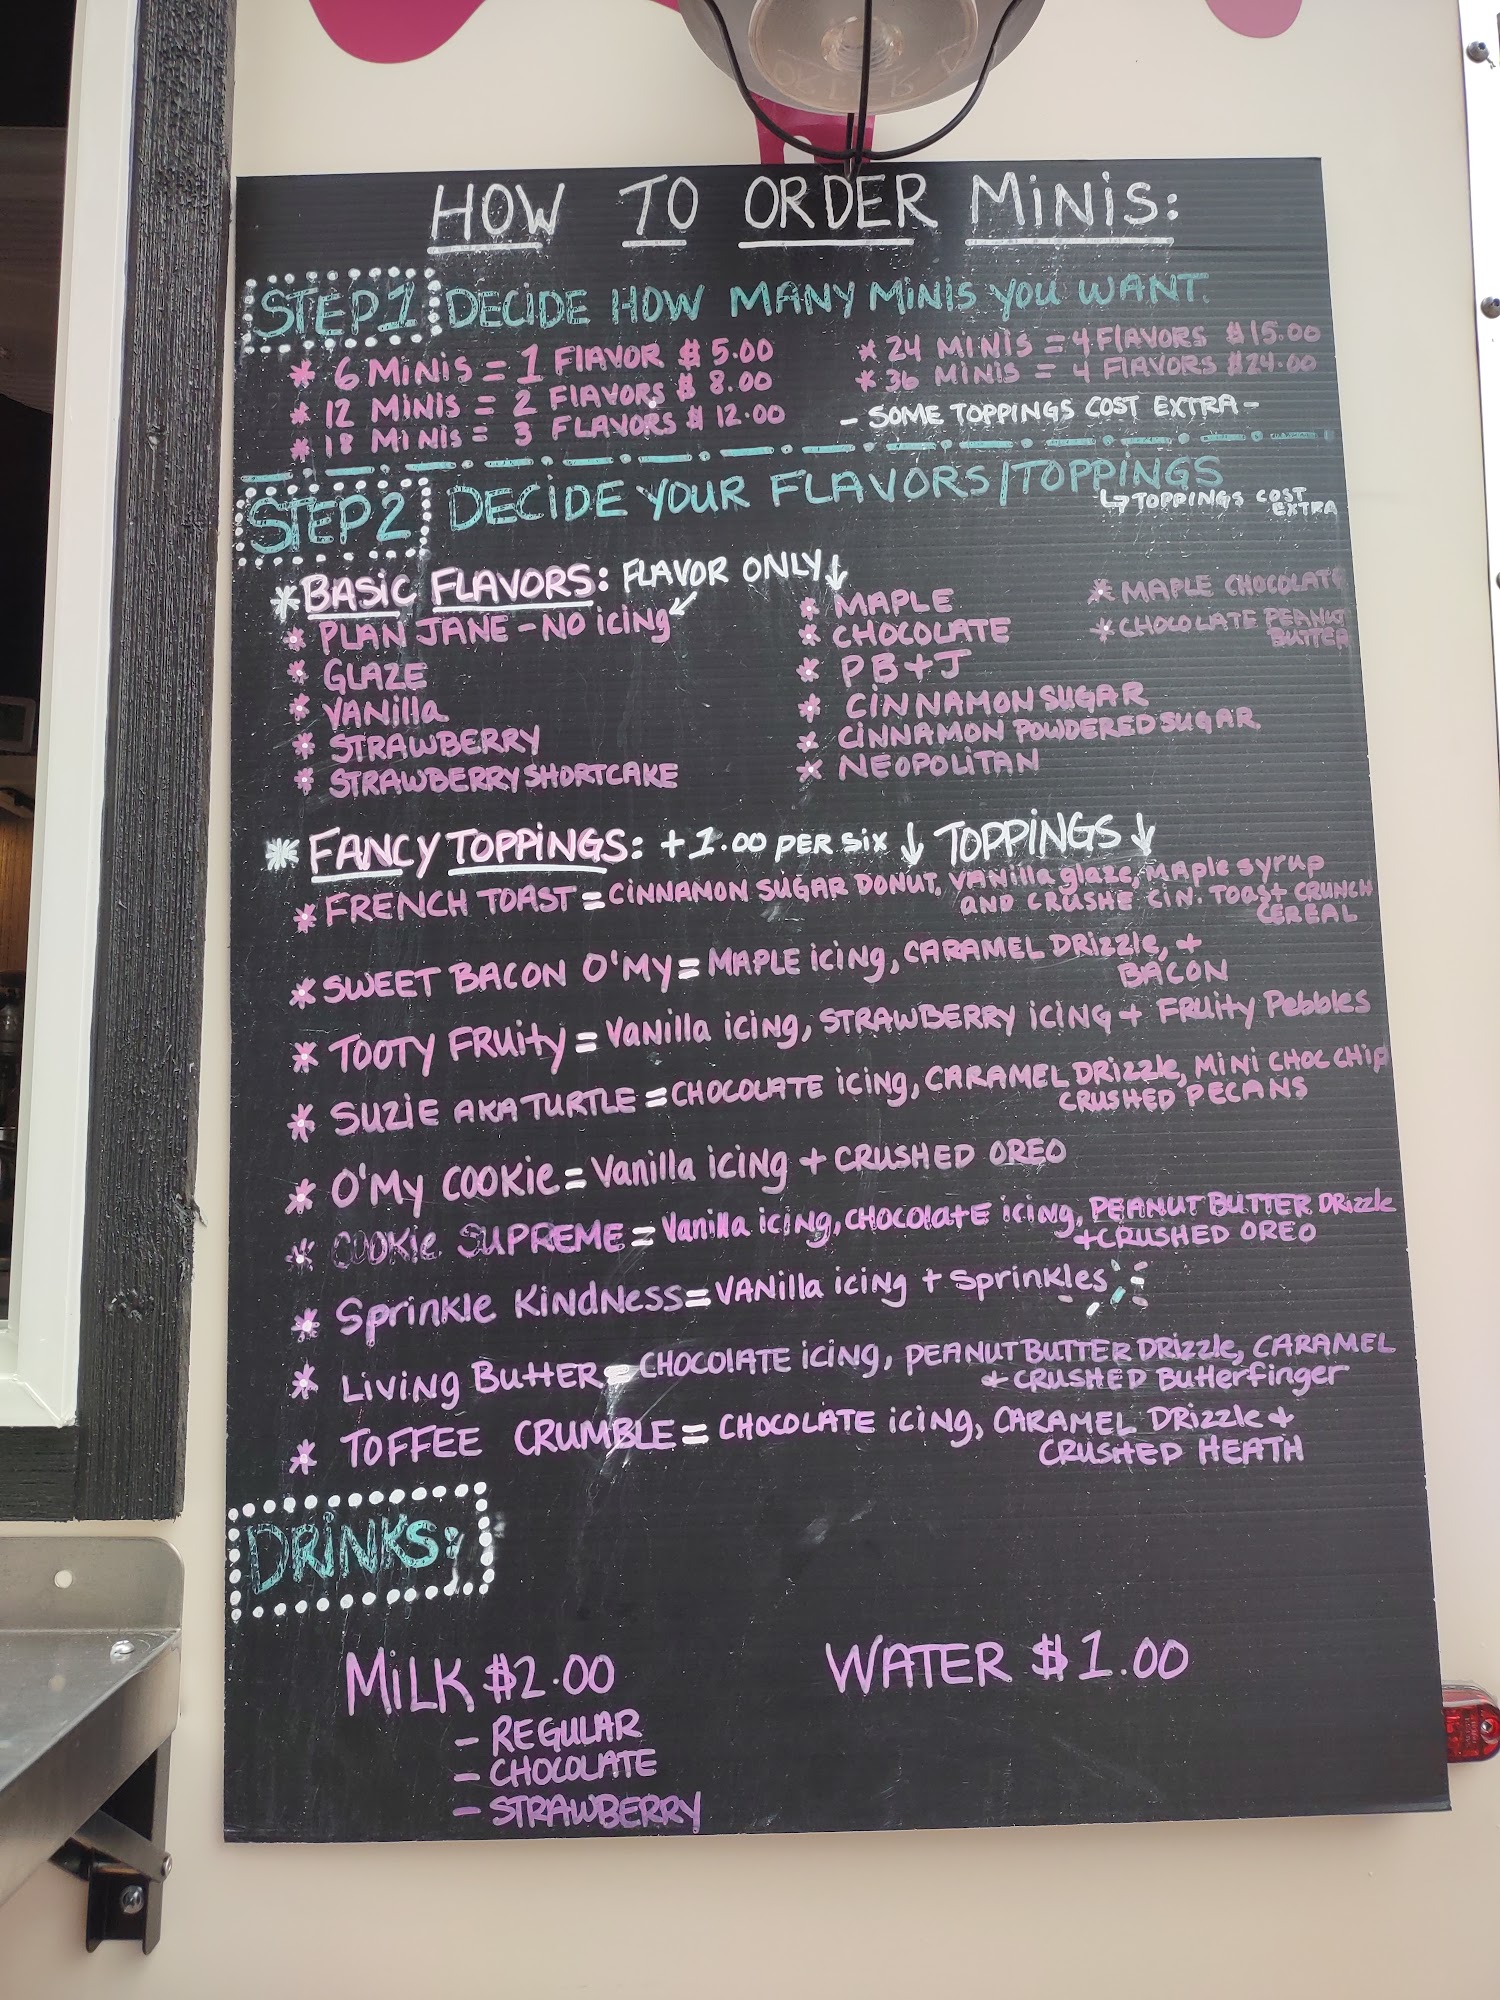 HOW TO ORDER MINIS:
STEP 1 DECIDE HOW MANY MINIS YOU WANT.
* 6 MINIS = 1 FLAVOR $5.00
* 12 MINIS = 2 FLAVORS $8.00
* 18 MINIS = 3 FLAVORS $12.00
* 24 MINIS = 4 FLAVORS $15.00
* 36 MINIS = 4 FLAVORS $24.00
- SOME TOPPINGS COST EXTRA -
STEP 2 DECIDE YOUR FLAVORS/TOPPINGS
↳ TOPPINGS COST
EXTRA
* BASIC FLAVORS: FLAVOR ONLY ↓
* PLAN JANE - NO ICING
* GLAZE
* VANILLA
* STRAWBERRY
* STRAWBERRY SHORTCAKE
* MAPLE
* CHOCOLATE
* PB+J
* CINNAMON SUGAR
* CINNAMON POWDERED SUGAR
* NEOPOLITAN
* MAPLE CHOCOLATE
* CHOCOLATE PEANUT
BUTTER
* FANCY TOPPINGS: +1.00 PER SIX ↓ TOPPINGS ↓
* FRENCH TOAST = CINNAMON SUGAR DONUT, VANILLA GLAZE, MAPLE SYRUP
AND CRUSHE CIN. TOAST CRUNCH
CEREAL
* SWEET BACON O'MY = MAPLE ICING, CARAMEL DRIZZLE, +
BACON
* TOOTY FRUITY = VANILLA ICING, STRAWBERRY ICING + FRUITY PEBBLES
* SUZIE AKA TURTLE = CHOCOLATE ICING, CARAMEL DRIZZLE, MINI CHOC CHIP
CRUSHED PECANS
* O'MY COOKIE = VANILLA ICING + CRUSHED OREO
* COOKIE SUPREME = VANILLA ICING, CHOCOLATE ICING, PEANUT BUTTER DRIZZLE
+ CRUSHED OREO
* SPRINKLE KINDNESS = VANILLA ICING + SPRINKLES
* LIVING BUTTER = CHOCOLATE ICING, PEANUT BUTTER DRIZZLE, CARAMEL
+ CRUSHED BUTTERFINGER
* TOFFEE CRUMBLE = CHOCOLATE ICING, CARAMEL DRIZZLE +
CRUSHED HEATH
DRINKS:
MILK $2.00
- REGULAR
- CHOCOLATE
- STRAWBERRY
WATER $1.00